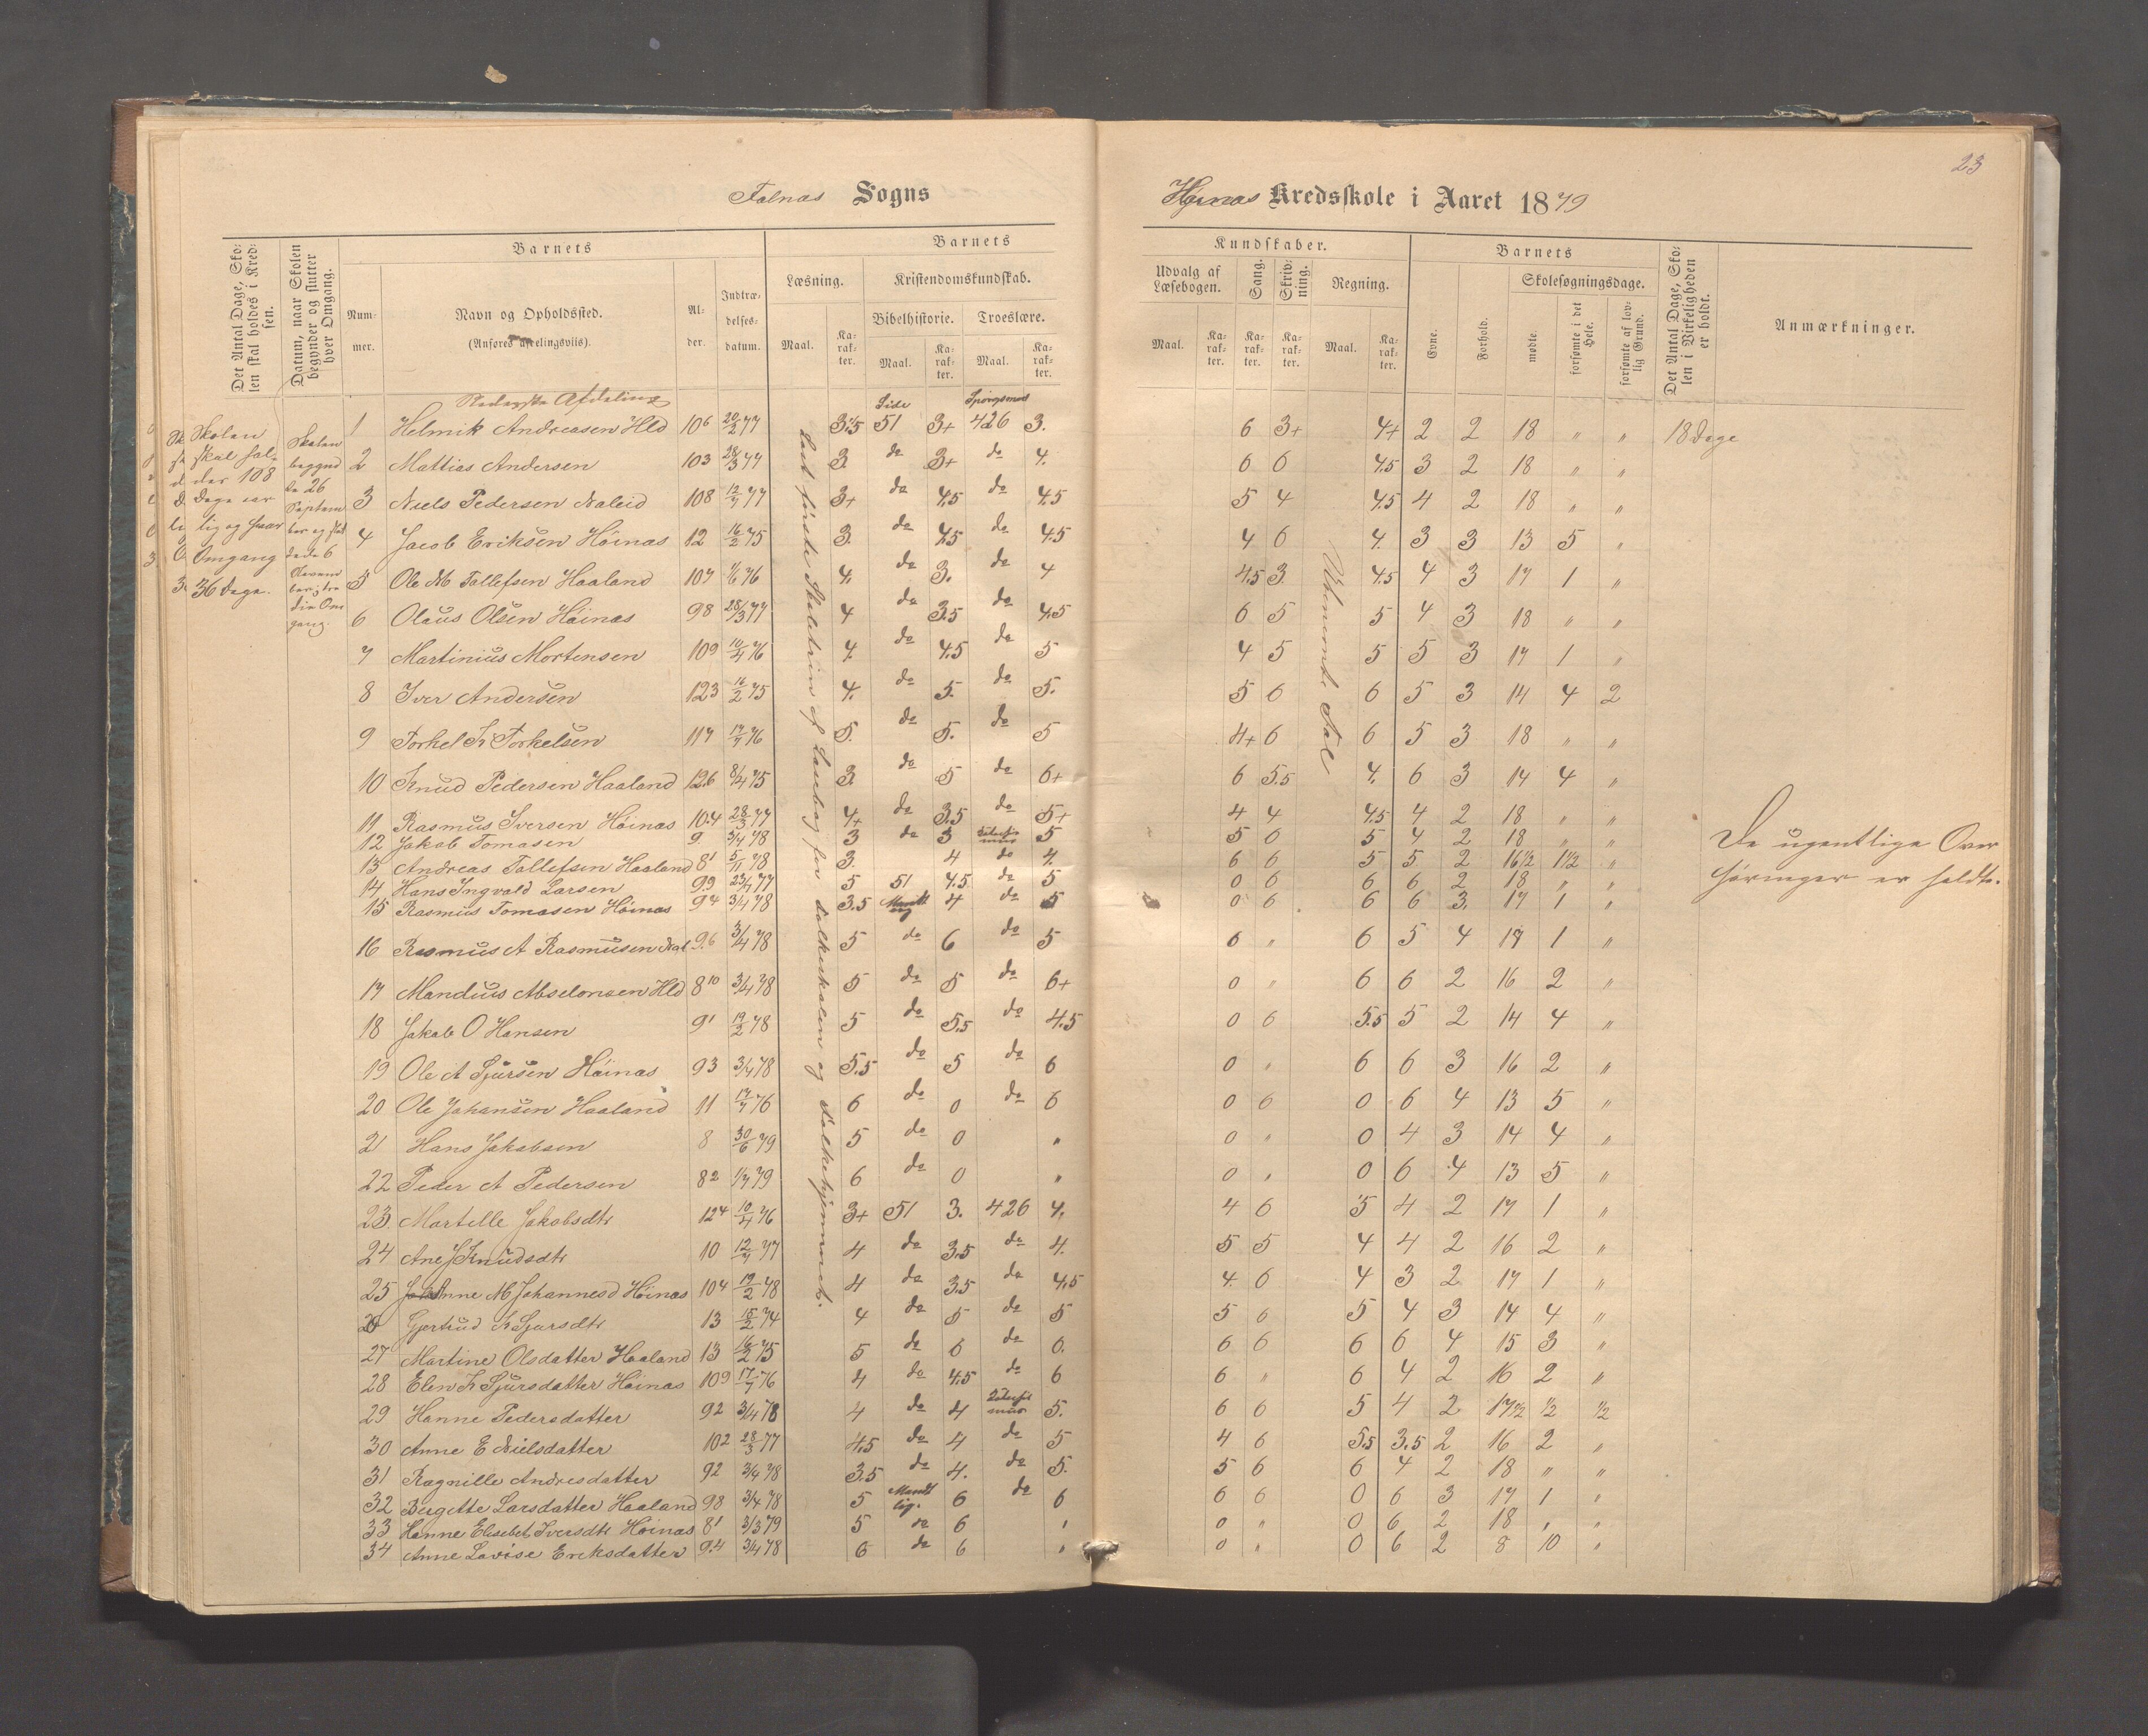 23
Falnæs Sogns
Høinæs Kredsskole i Aaret 1879
Det Antal Dage, Skolen skal holdes i Kredsen.
Datum, naar Skolen begynder og slutter hver Omgang.
Barnets
Nummer.
Navn og Opholdssted.
(Anføres afdelingsviis).
Alder.
Indtrædelsesdatum.
Barnets
Læsning.
Maal.
Karakter.
Kristendomskundskab.
Bibelhistorie.
Troeslære.
Maal.
Karakter.
Maal.
Karakter.
Kundskaber.
Udvalg af Læsebogen.
Maal.
Karakter.
Sang.
Karakter.
Skrivning.
Karakter.
Regning.
Maal.
Karakter.
Barnets
Evne.
Forhold.
Skolesøgningsdage.
mødte.
forsømte i det Hele.
forsømte af lovlig Grund.
Det Antal Dage, Skolen i Virkeligheden er holdt.
Anmærkninger.
Nederste Afdeling
Side
Spørgsmaal
Skolen
skal hol-
des 108
Dage aar
lig og hver
Omgang
36 Dage.
Skolen
begynd
te 26
Septem
ber og slut
tede 6
Novem
ber, tre
die Om
gang.
1 Helmik Andreasen Hld 10 6 20/2 77 3.5 51 3+ 426 3. 6 3+ 4+ 2 2 18 " " 18 Dage
2 Mattias Andersen 10 3 28/3 77 3. do 3+ do 4. 6 6 4.5 3 2 18 " "
3 Niels Pedersen Naleid 10 8 12/7 77 3+ do 4.5 do 4.5 5 4 4.5 4 2 18 " "
4 Jacob Eriksen Høinæs 12 16/2 75 3. do 4.5 do 4.5 4 6 4. 3 3 13 5 "
5 Ole M Tollefsen Haaland 10 7 1/6 76 4. do 3. do 4 4.5 3. 4.5 4 3 17 1 "
6 Olaus Olsen Høinæs 9 8 28/3 77 4 do 3.5 do 4.5 6 5 5 4 3 18 " "
7 Martinius Mortensen 10 9 10/4 76 4. do 4.5 do 5 4 5 5 5 3 17 1 "
8 Iver Andersen 12 3 16/2 75 4. do 5. do 5. 5 6 6 5 3 14 4 2
9 Torkel K Torkelsen 11 7 17/7 76 5. do 5. do 5 4+ 6 6 5 3 18 " "
10 Knud Pedersen Haaland 12.6 8/4 75 3. do 5 do 6+ 6 5.5 4. 6 3 14 4 "
11 Rasmus Iversen Høinæs 10.4 28/3 77 4+ do 3.5 do 5+ 4 4 4.5 4 2 18 " "
12 Jakob Tomasen 9 3/4 78 3 do 3 5 5 6 5 4 2 18 " "
13 Andreas Tollefsen Haaland 8 1 5/11 78 3. 4 do 4. 6 6 5 5 2 16 1/2 1 1/2 "
14 Hans Ingvald Larsen 9.9 23/4 77 5 51 4.5 do 5 0 6 6 6 2 18 " "
15 Rasmus Tomasen Høinæs 9 4 3/4 78 3.5 Mundt lig 4 do 5 0 6 6 6 3. 17 1 "
16 Rasmus A Rasmusen Nal 9.6 3/4 78 5 do 6 do 5 6 " 6 5 4 17 1 "
17 Mandius Abselonsen Hld 8 10 3/4 78 5 do 5 do 6+ 0 " 6 6 2 16 2 "
18 Jakob O Hansen 9 1 19/2 78 5 do 5.5 do 4.5 0 6 5.5 5 2 14 4 "
19 Ole A Sjursen Høinæs 9 3 3/4 78 5.5 do 5 do 6 0 " 6 6 3 16 2 "
20 Ole Johansen Haaland 11 17/7 76 6 do 0 do 6 0 6 0 6 4 13 5 "
21 Hans Jakobsen 8 30/6 79 5 do 0 " 0 " 0 4 3 14 4 "
22 Peder A Pedersen 8 2 1/7 79 6 do 0 " 0 " 0 6 4 13 5 "
23. Martelle Jakobsdtr 12 4 10/4 76 3+ 51 3. 426 4. 4 6 5 4 2 17 1 "
24 Ane J Knudsdtr 10 12/7 77 4 do 3.5 do 4. 5 5 4 4 2 16 2 "
25 Anne M Johannesd Høinæs 10 4 19/2 78 4 do 3.5 do 4.5 4. 6 4 3 2 17 1 "
26 Gjertrud K Sjursdtr 13 15/2 74 4 do 5 do 5 5 6 5 4 3 14 4 "
27 Martine Olsdatter Haaland 13 16/2 75 5 do 6 do 6. 6 6 6 6 4 15 3 "
28 Elen K Sjursdatter Høinæs 10 9 17/7 76 4 do 4.5 do 6 6 " 6 4 2 16 2 "
29 Hanne Pedersdatter 9 2 3/4 78 4 do 4 5. 6 6 5 4 2 17 1/2 1/2 1/2
30 Anne E Nielsdatter 10 2 28/3 77 4.5 do 4 do 5 4 6 5.5 3.5 2 16 2 "
31 Ragnille Andresdatter 9 2 3/4 78 3.5 do 4. do 5. 5 6 6 4 2 18 " "
32 Birgitte Larsdatter Haaland 9 8 3/4 78 5 Mundt lig. 6 do 6 6 6 0 6 3 17 1 "
33 Hanne Elisebet Iversdtr Høinæs 8 1 3/3 79 5 do 6 " 0 " 0 6 2 18 " "
34 Anne Lovise Eriksdatter 9.4 3/4 78 6 do 6 " 0 " 0 6 2 8 10 "
Læst første Skoletrin af Læsebog for Folkeskolen og Folkehjemmet.
Ubenævnte Tal
De ugentlige Over
høringer er holdte.